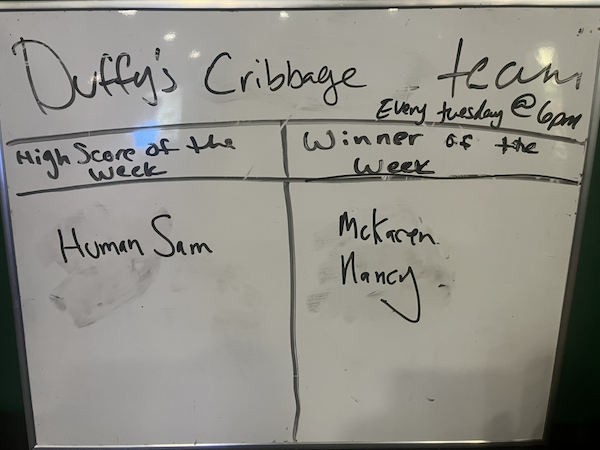 Duffy's Cribbage team
Every tuesday @ 6pm
High Score of the Week
Winner of the Week
Human Sam
McKaren
Nancy